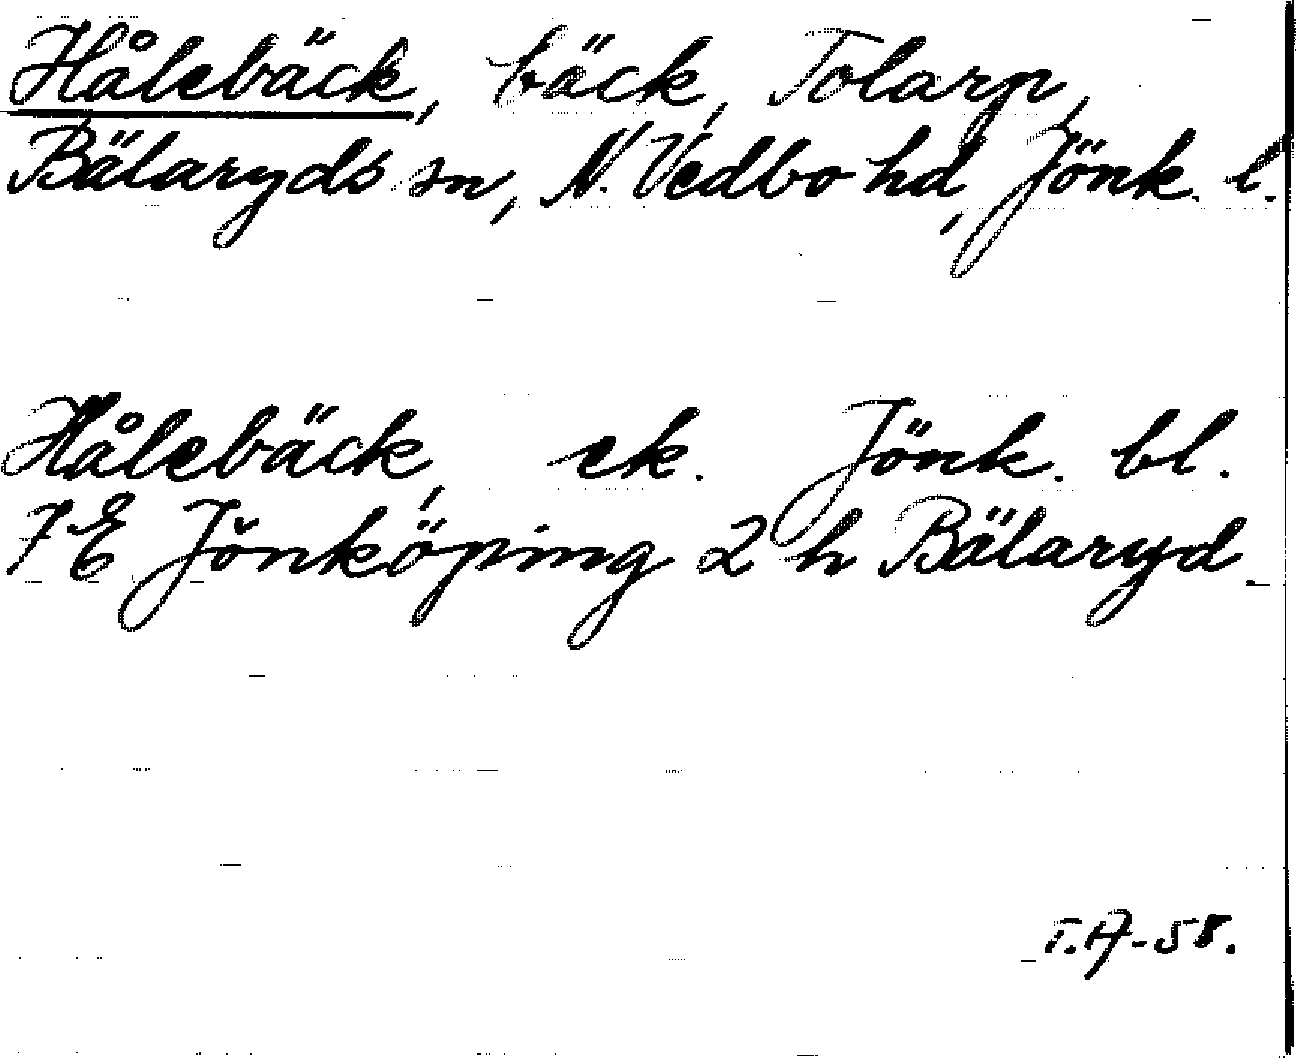 Hålebäck, bäck, Tolarp,
Bälaryds sn, N. Vedbo hd, Jönk. l.
Hålebäck, ek. Jönk. bl.
7E Jönköping 2 h Bälaryd.
T.A-58.